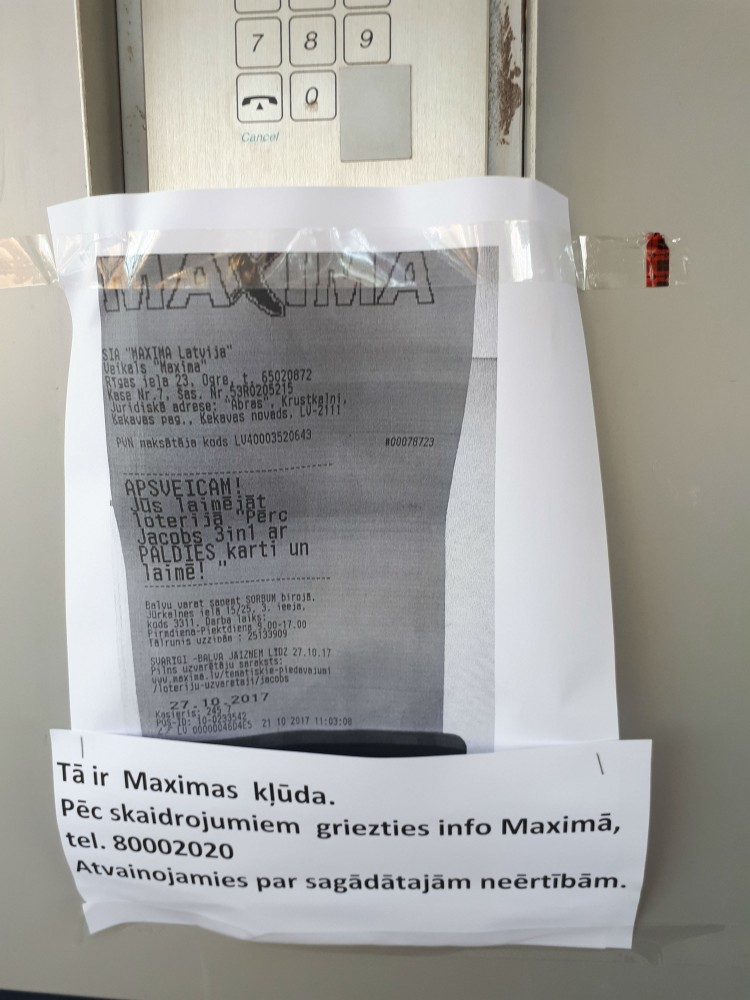 7 8 9
0
Cancel
MAXIMA
SIA "MAXIMA Latvija"
Veikals "Maxima"
Rīgas iela 23, Ogre, t. 65020872
Kase Nr.7, Sas. Nr.53R0205215
Juridiskā adrese: "Abras", Krustkalni,
Ķekavas pag., Ķekavas novads, LV-2111
PVN maksātāja kods LV40003520643 #00078723
APSVEICAM!
Jūs laimējāt
loterijā "Pērc
Jacobs 3in1 ar
PALDIES karti un
laimē! "
Balvu varat saņemt SORBUM birojā,
Jūrkalnes ielā 15/25, 3. ieeja,
kods 3311. Darba laiks:
Pirmdiena-Piektdiena 9.00-17.00
Tālrunis uzziņām : 25133909
SVARĪGI -BALVA JĀIZŅEM LĪDZ 27.10.17
Pilns uzvarētāju saraksts:
www.maxima.lv/tematiskie-piedavajumi
/loteriju-uzvaretaji/jacobs
27.10.2017
Kasieris: 245
21 10 2017 11:03:08
Tā ir Maximas kļūda.
Pēc skaidrojumiem griezties info Maximā,
tel. 80002020
Atvainojamies par sagādātajām neērtībām.